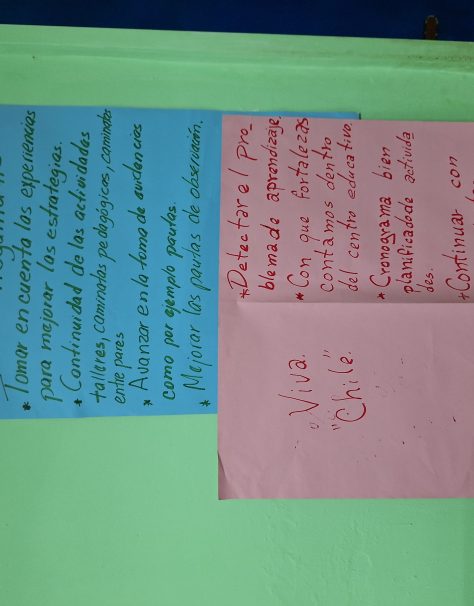 * Tomar en cuenta las experiencias
para mejorar las estrategias.
* Continuidad de las actividades
talleres, caminatas pedagógicas, caminatas
entre pares
* Avanzar en la toma de evidencias
como por ejemplo pautas.
* Mejorar las pautas de observación.
* Detectar el pro_
blema de aprendizaje.
* Con que fortalezas
contamos dentro
del centro educativo.
* Cronograma bien
planificado de activida
des.
* Continuar con
¡Viva.
"Chile"